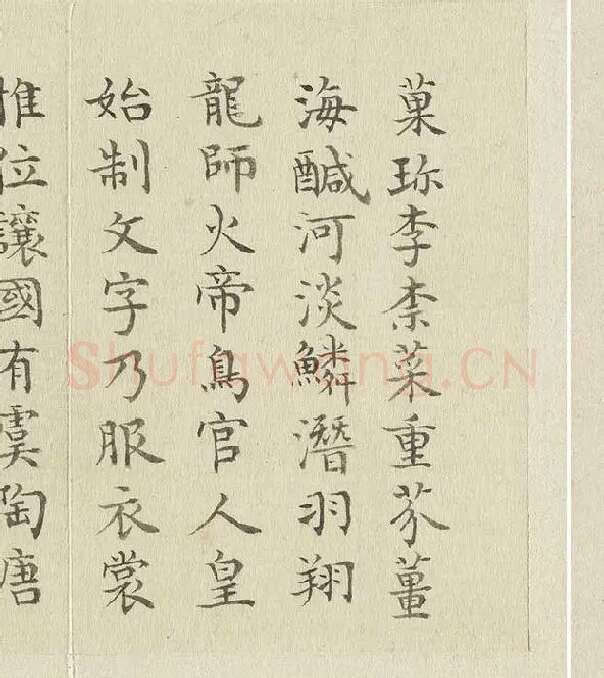 菓珎李柰菜重芥薑
海醎河淡鱗潛羽翔
龍師火帝鳥官人皇
始制文字乃服衣裳
推位讓國有虞陶唐
Shufawang.CN